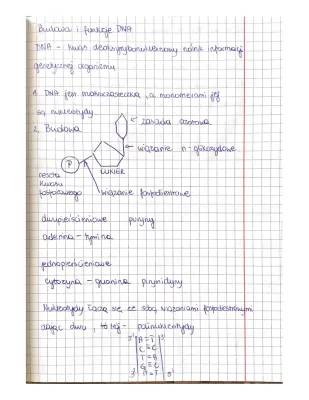 Budowa i funkcje DNA
DNA - kwas deoksyrybonukleinowy nośnik informacji
genetycznej organizmu
1. DNA jest makrocząsteczką, a monomerami jej
są nukleotydy
2. Budowa
zasada azotowa
wiązanie n-glikozydowe
P
CUKIER
reszta
kwasu
fosforowego
wiązanie fosfodiestrowe
dwupierścieniowe puryny
adenina - tymina
jednopierścieniowe
cytozyna - guanina pirymidyny
Nukleotydy łączą się ze sobą wiązaniami fosfodiestrowymi
5' A = T 3'
G ≡ C
3' A = T 5'